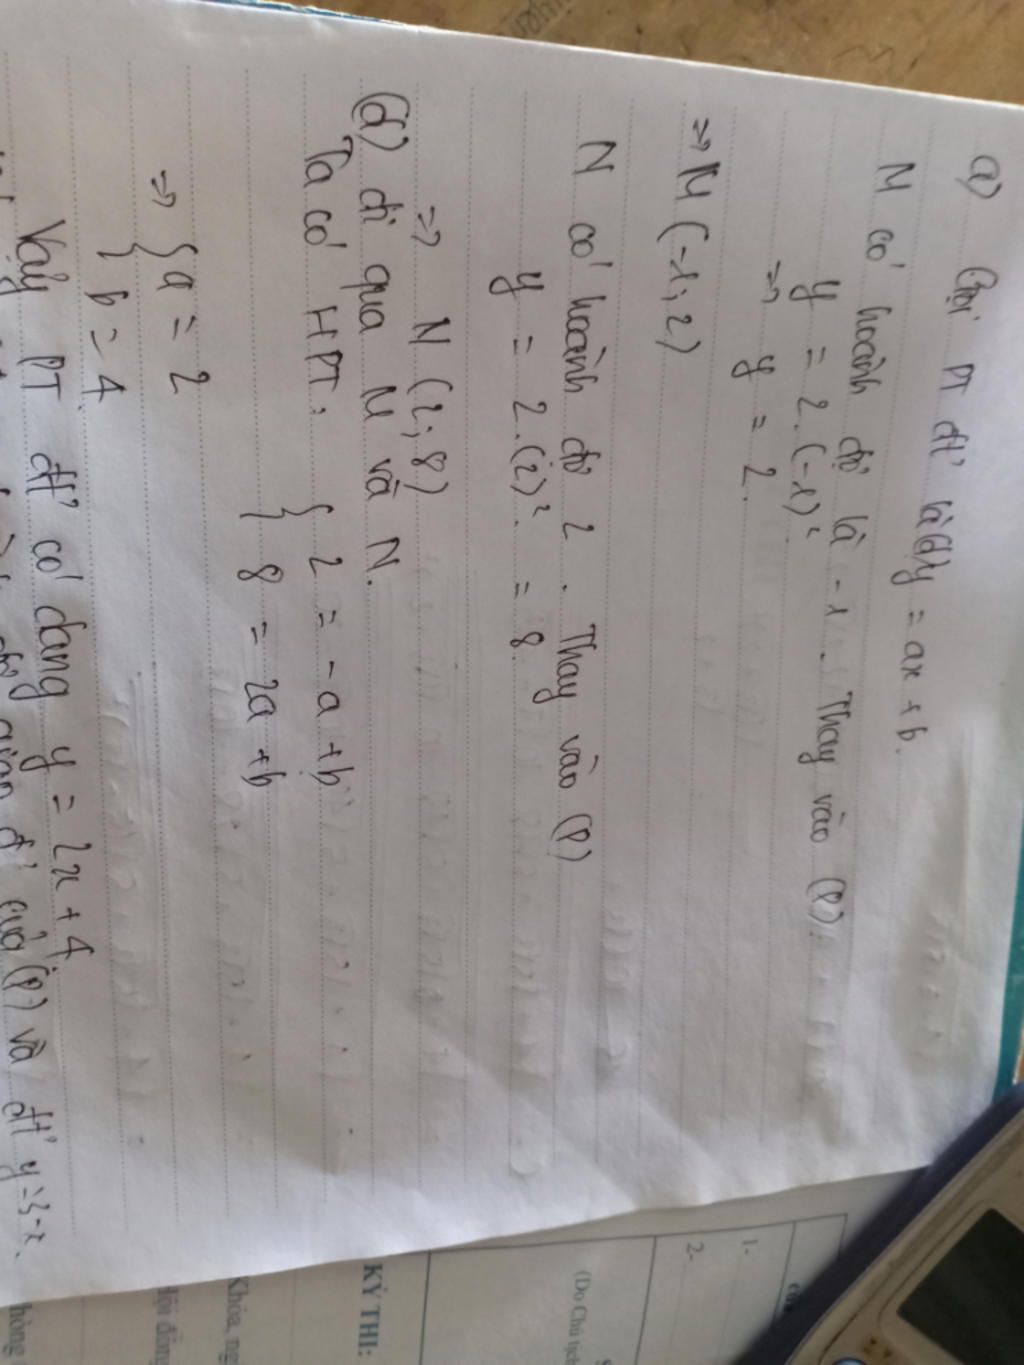 a) Gọi PT đt là (d) y = ax + b.
M có hoành độ là -1. Thay vào (P):
y = 2.(-1)²
=> y = 2.
=> M (-1; 2)
N có hoành độ 2. Thay vào (P)
y = 2.(2)². = 8.
=> N (2; 8)
(d) đi qua M và N.
Ta có HPT: { 2 = -a + b
8 = 2a + b
=> { a = 2
b = 4.
Vậy PT đt có dạng y = 2x + 4.
của (P) và đt y = 3 - x.
1-
2-
(Do Chủ tịch
KỲ THI:
Khóa, ng
Hội đồng